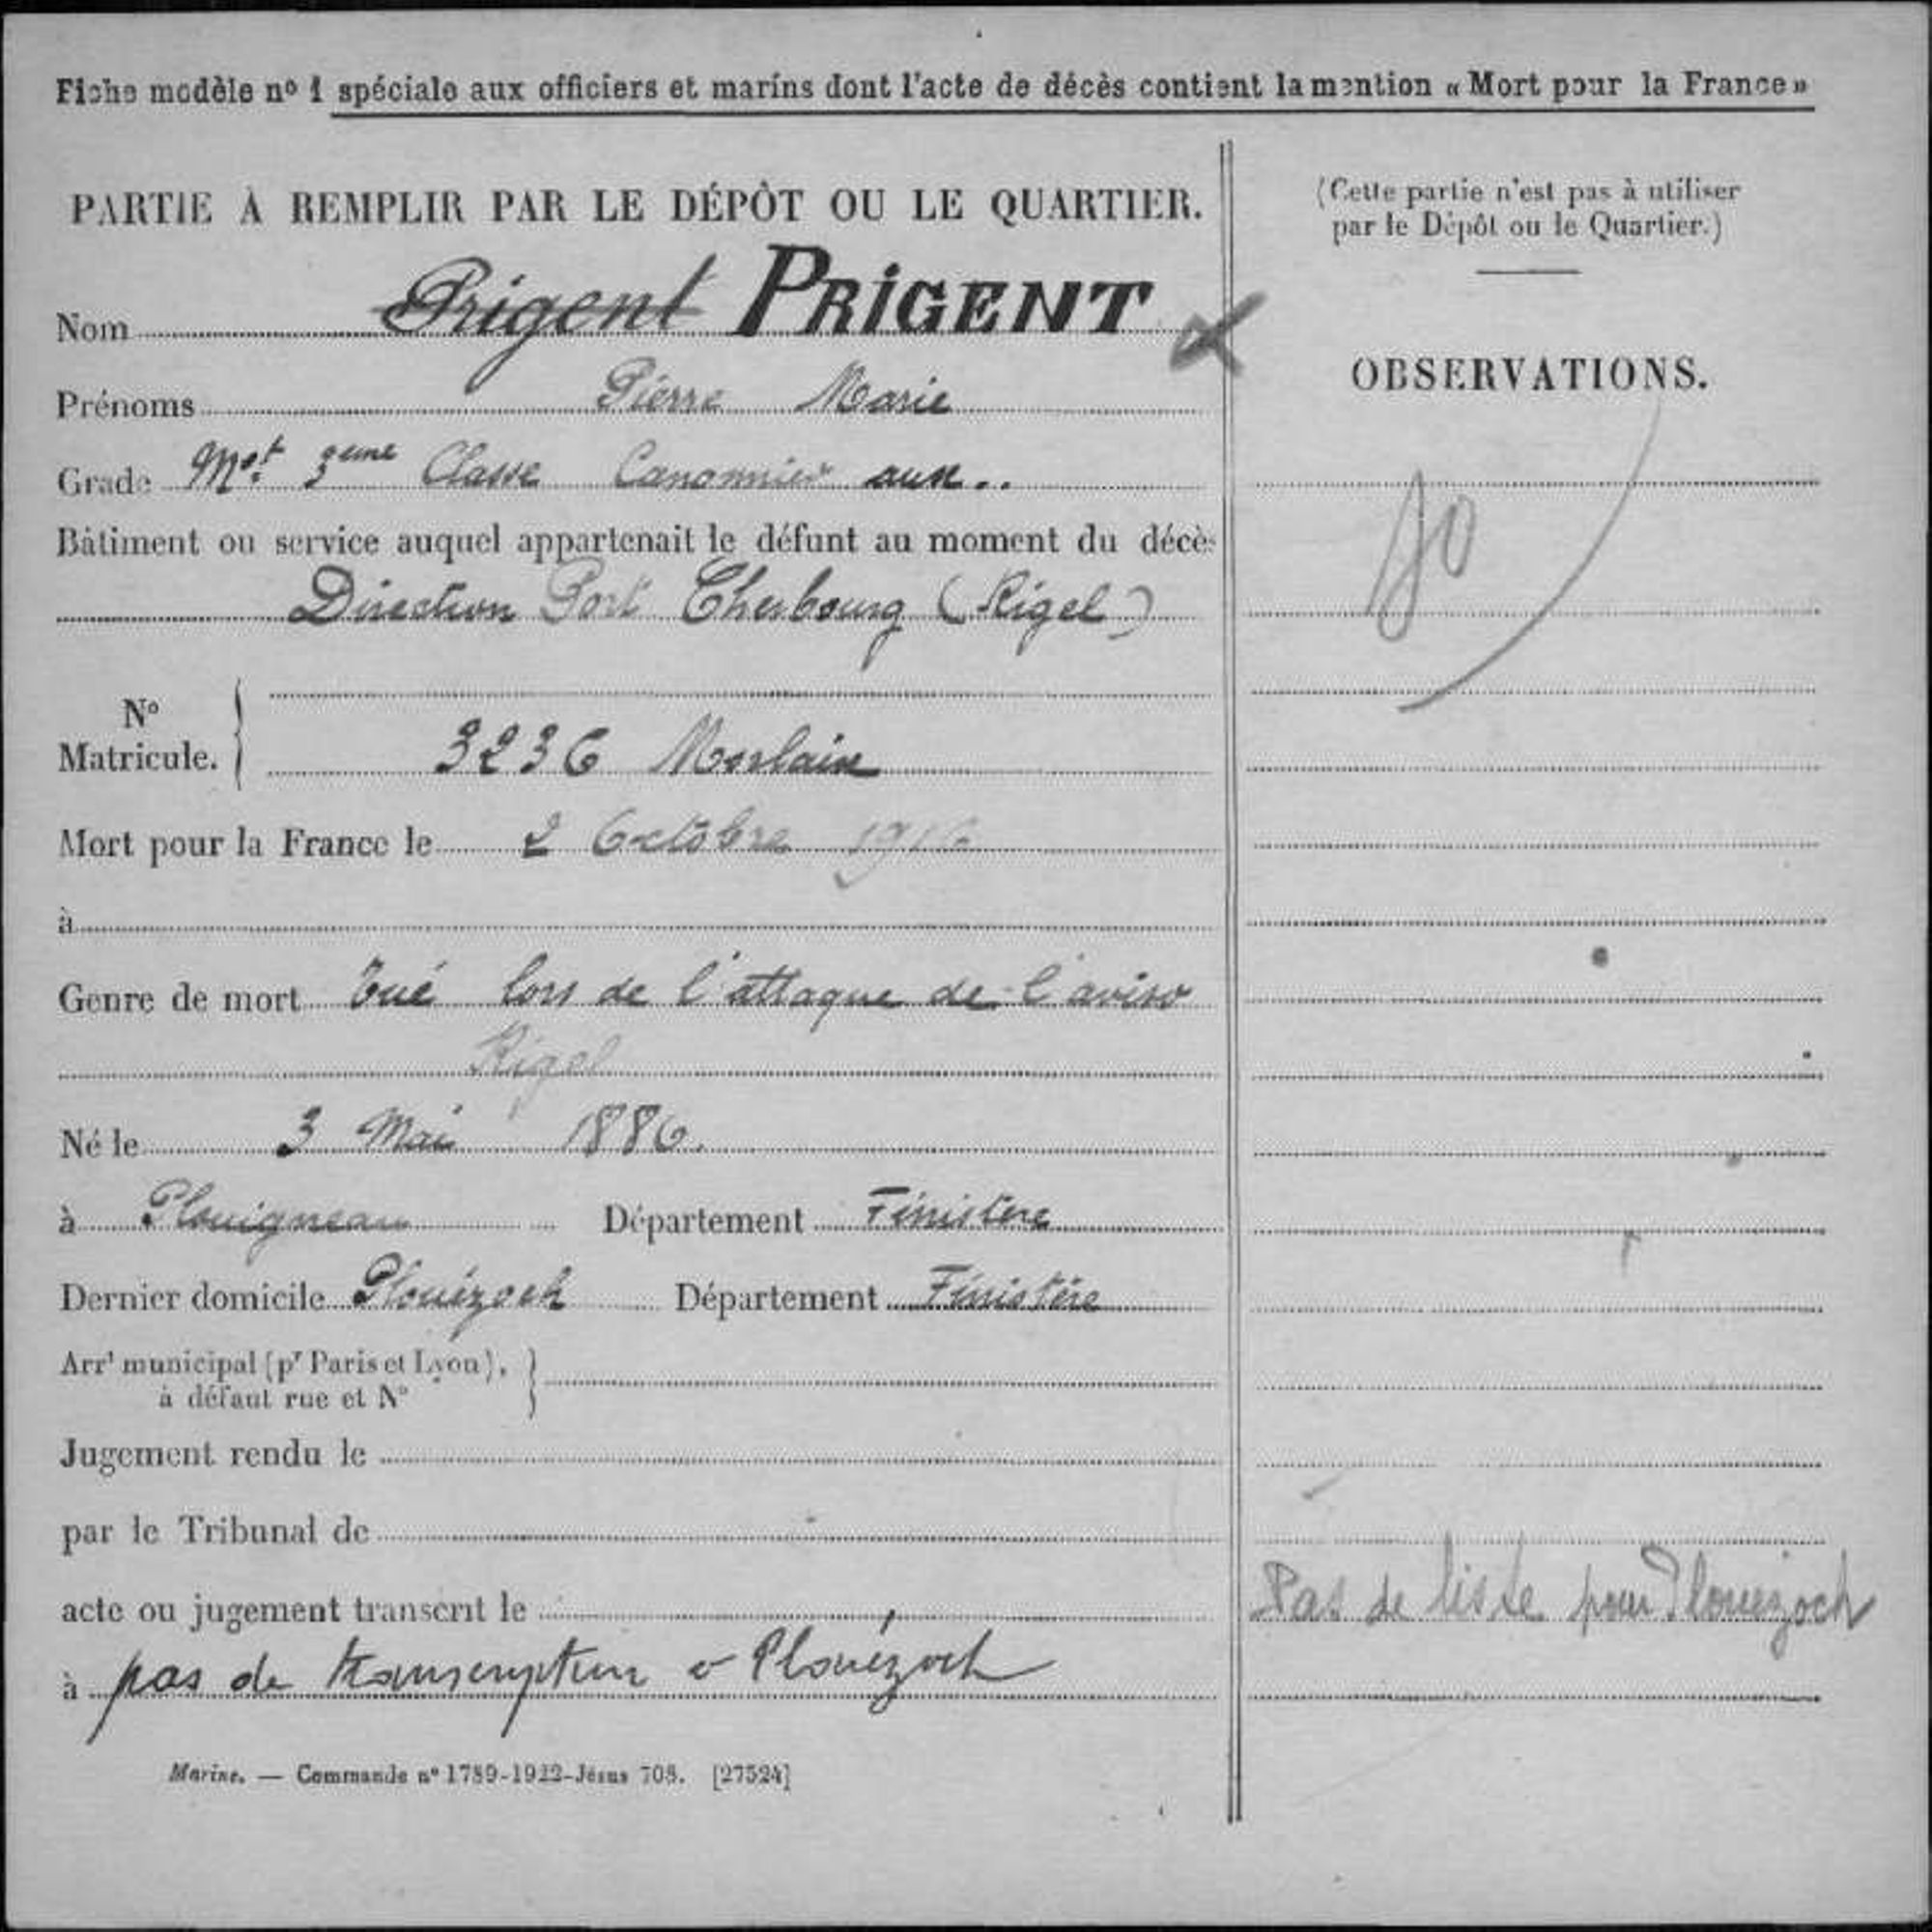 Fiche modèle n° 1 spéciale aux officiers et marins dont l'acte de décès contient la mention « Mort pour la France »
PARTIE À REMPLIR PAR LE DÉPÔT OU LE QUARTIER.
Nom Prigent PRIGENT
Prénoms Pierre Marie
Grade Mot 3eme Classe Canonnier aux..
Bâtiment ou service auquel appartenait le défunt au moment du décès
Direction Port Cherbourg (Rigel)
N°
Matricule. 3236 Morlaix
Mort pour la France le 2 Octobre 1916
à
Genre de mort Tué lors de l'attaque de l'aviso
Rigel
Né le 3 Mai 1886.
à Plouigneau Département Finistère
Dernier domicile Plouézoch Département Finistère
Arrt municipal (pr Paris et Lyon),
à défaut rue et N°
Jugement rendu le
par le Tribunal de
acte ou jugement transcrit le
à pas de transcription à Plouézoch
Marine. — Commande n° 1789-1922-Jésus 708. [27524]
(Cette partie n'est pas à utiliser
par le Dépôt ou le Quartier.)
OBSERVATIONS.
Pas de liste pour Plouezoch